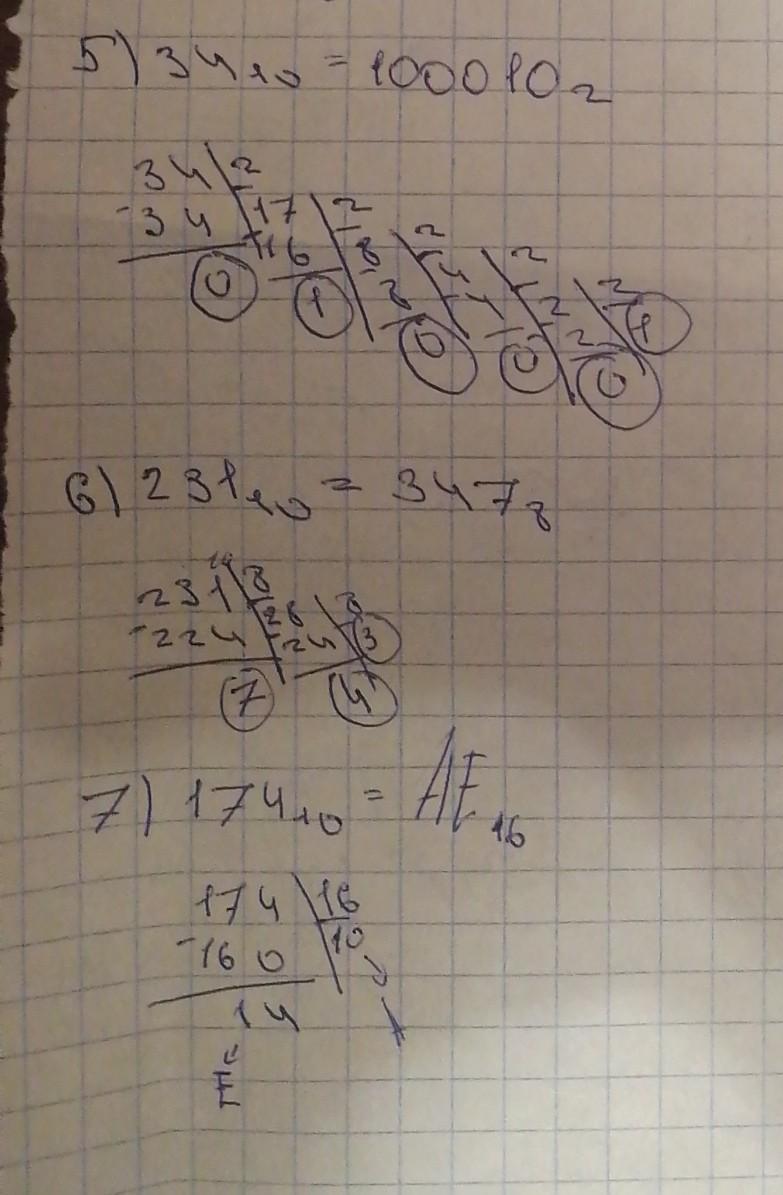 5) 34₁₀ = 100010₂
34 2
-34 17 2
0 -16 8 2
1 -8 4 2
0 4 2 2
0 2 1
0
6) 231₁₀ = 347₈
231 8
-224 28 8
7 -24 3
4
7) 174₁₀ = AE₁₆
174 16
-160 10
14 A
E